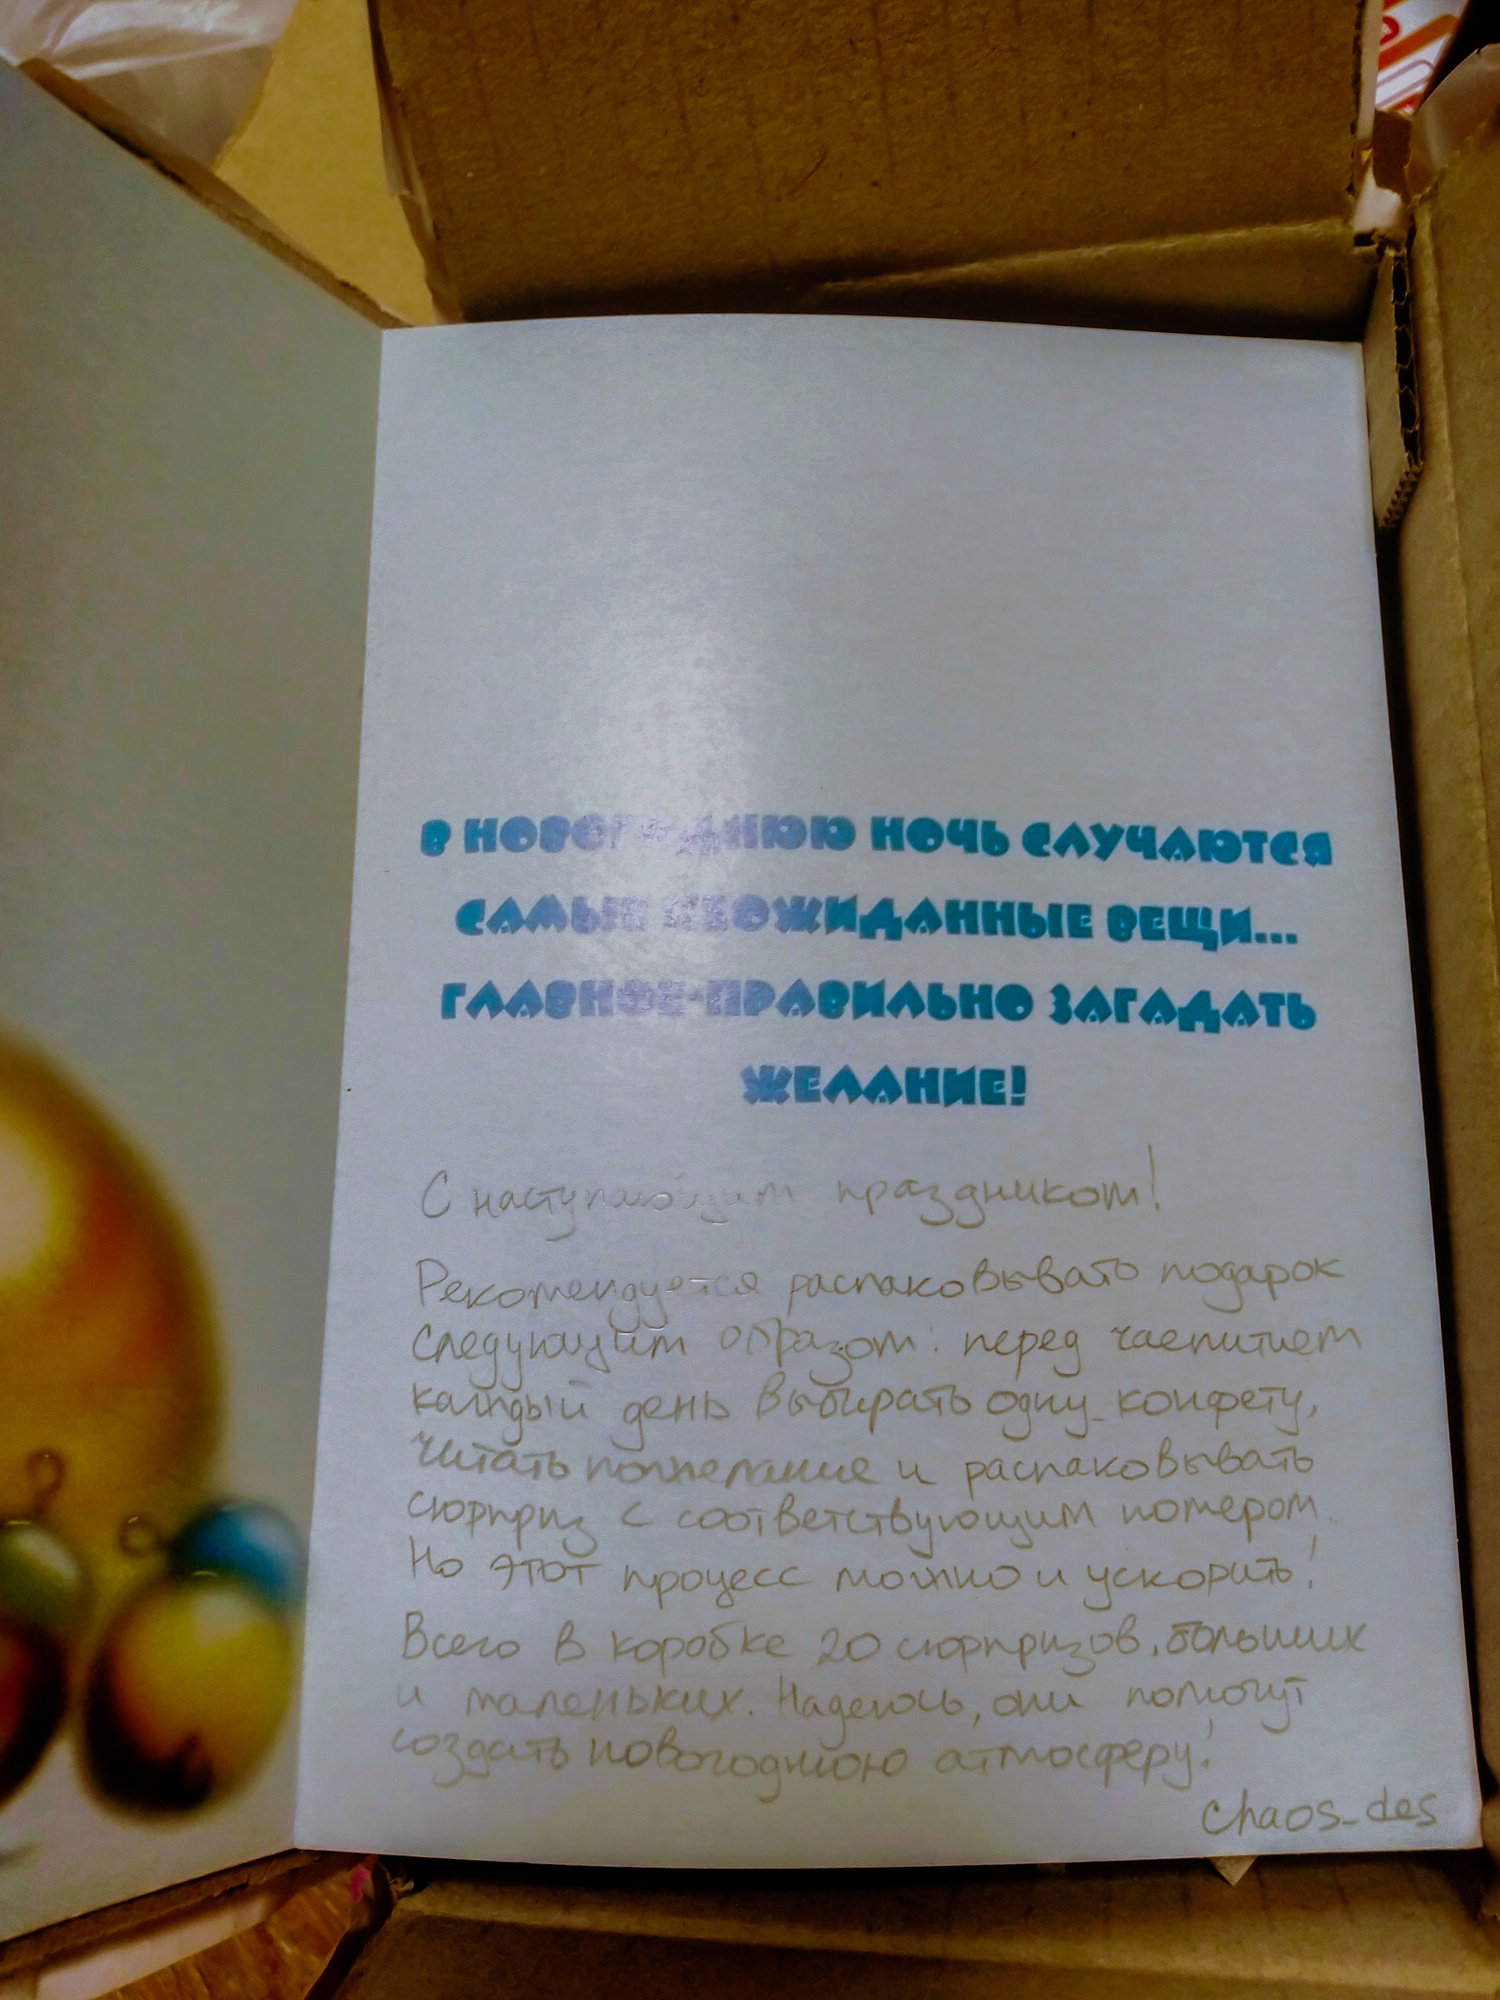 В НОВОГОДНЮЮ НОЧЬ СЛУЧАЮТСЯ
САМЫЕ НЕОЖИДАННЫЕ ВЕЩИ...
ГЛАВНОЕ-ПРАВИЛЬНО ЗАГАДАТЬ
ЖЕЛАНИЕ!
С наступающим праздником!
Рекомендуется распаковывать подарок
следующим образом: перед чаепитием
каждый день выбирать одну конфету,
читать пожелание и распаковывать
сюрприз с соответствующим номером.
Но этот процесс можно и ускорить!
Всего в коробке 20 сюрпризов, больших
и маленьких. Надеюсь, они помогут
создать новогоднюю атмосферу!
chaos_des